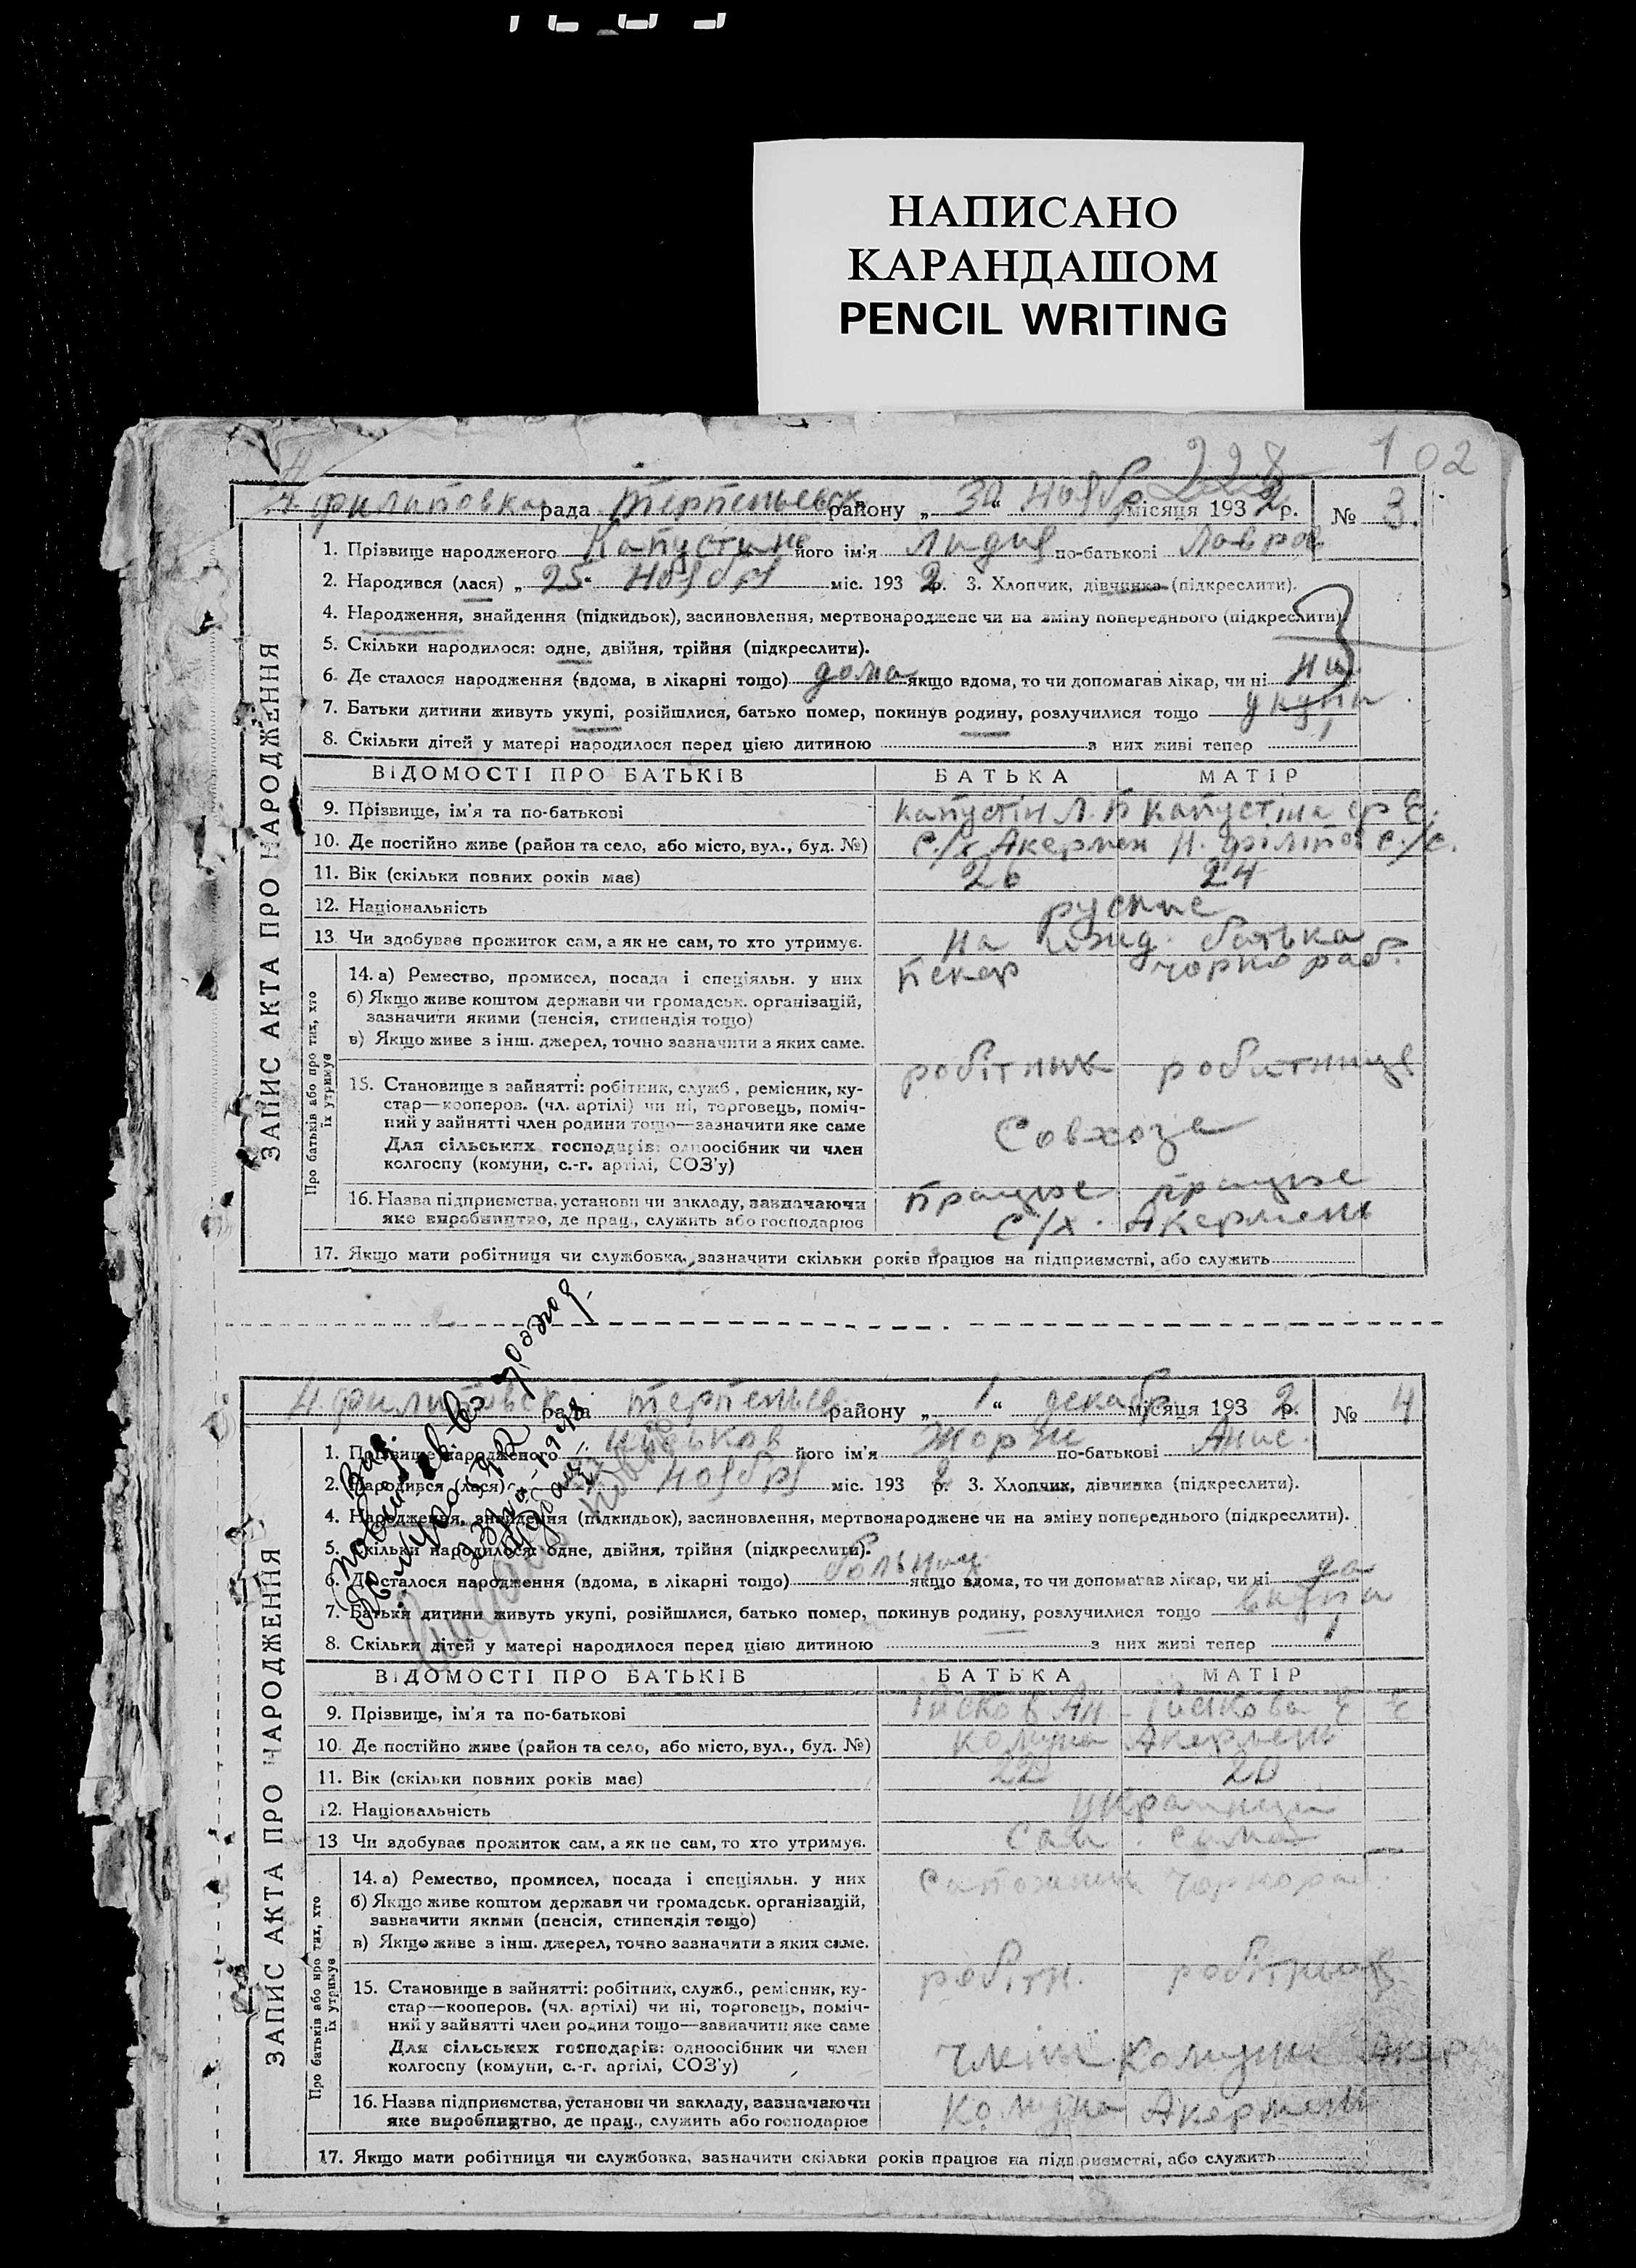 НАПИСАНО
КАРАНДАШОМ
PENCIL WRITING
228 102
Н филиповка рада Терпеньевск району „ 30 “ Ноябр місяця 193 2 р. № 3.
1. Прізвище народженого Капустине його ім'я Лидия по-батькові Лавров
2. Народився (лася) „ 25 “ Ноября міс. 193 2 р. 3. Хлопчик, дівчинка (підкреслити).
4. Народження, знайдення (підкидьок), засиновлення, мертвонароджене чи на зміну попереднього (підкреслити)
5. Скільки народилося: одне, двійня, трійня (підкреслити).
6. Де сталося народження (вдома, в лікарні тощо) дома якщо вдома, то чи допомагав лікар, чи ні ни
7. Батьки дитини живуть укупі, розійшлися, батько помер, покинув родину, розлучилися тощо укупи
8. Скільки дітей у матері народилося перед цією дитиною з них живі тепер
ВІДОМОСТІ ПРО БАТЬКІВ БАТЬКА МАТІР
9. Прізвище, ім'я та по-батькові Капустін Л. Капустіна Е.
10. Де постійно живе (район та село, або місто, вул., буд. №) С./х Акермен Н. філіпов с./с.
11. Вік (скільки повних років має) 26 24
12. Національність руские
13. Чи здобував прожиток сам, а як не сам, то хто утримує. на ижид. батька
14. а) Ремество, промисел, посада і спеціяльн. у них пекар чорнораб.
б) Якщо живе коштом держави чи громадськ. організацій,
зазначити якими (пенсія, стипендія тощо)
в) Якщо живе з інш. джерел, точно зазначити з яких саме.
15. Становище в зайнятті: робітник, служб., ремісник, ку- робітник робитниця
стар—кооперов. (чл. артілі) чи ні, торговець, поміч-
ний у зайнятті член родини тощо—зазначити яке саме Совхоза
Для сільських господарів: одноосібник чи член
колгоспу (комуни, с.-г. артілі, СОЗ'у)
16. Назва підприємства, установи чи закладу, зазначаючи працює працює
яке виробництво, де прац., служить або господарює с/х. Акермень
17. Якщо мати робітниця чи службовка, зазначити скільки років працює на підприємстві, або служить
ЗАПИС АКТА ПРО НАРОДЖЕННЯ
Про батьків або про тих, хто
їх утримує
Н филиповск рада Терпеньев району „ 1 “ декабр місяця 193 2 р. № 4
1. Прізвище народженого його ім'я Жорж по-батькові Анис.
2. Народився (лася) ноября міс. 193 2 р. 3. Хлопчик, дівчинка (підкреслити).
4. Народження, знайдення (підкидьок), засиновлення, мертвонароджене чи на зміну попереднього (підкреслити).
5. Скільки народилося: одне, двійня, трійня (підкреслити).
6. Де сталося народження (вдома, в лікарні тощо) больниц якщо вдома, то чи допомагав лікар, чи ні да
7. Батьки дитини живуть укупі, розійшлися, батько помер, покинув родину, розлучилися тощо вкупи
8. Скільки дітей у матері народилося перед цією дитиною з них живі тепер
ВІДОМОСТІ ПРО БАТЬКІВ БАТЬКА МАТІР
9. Прізвище, ім'я та по-батькові
10. Де постійно живе (район та село, або місто, вул., буд. №) комуна Акермень
11. Вік (скільки повних років має) 22 20
12. Національність украинци
13 Чи здобував прожиток сам, а як не сам, то хто утримує. сам. сама
14. а) Ремество, промисел, посада і спеціяльн. у них сапожник Чорнораб.
б) Якщо живе коштом держави чи громадськ. організацій,
зазначити якими (пенсія, стипендія тощо)
в) Якщо живе з інш. джерел, точно зазначити з яких саме.
15. Становище в зайнятті: робітник, служб., ремісник, ку- робітн. робітниця
стар—кооперов. (чл. артілі) чи ні, торговець, поміч-
ний у зайнятті член родини тощо—зазначити яке саме
Для сільських господарів: одноосібник чи член Комуни Акер
колгоспу (комуни, с.-г. артілі, СОЗ'у)
16. Назва підприємства, установи чи закладу, зазначаючи Комуна Акермень
яке виробництво, де прац., служить або господарює
17. Якщо мати робітниця чи службовка, зазначити скільки років працює на підприємстві, або служить
ЗАПИС АКТА ПРО НАРОДЖЕННЯ
Про батьків або про тих, хто
їх утримує